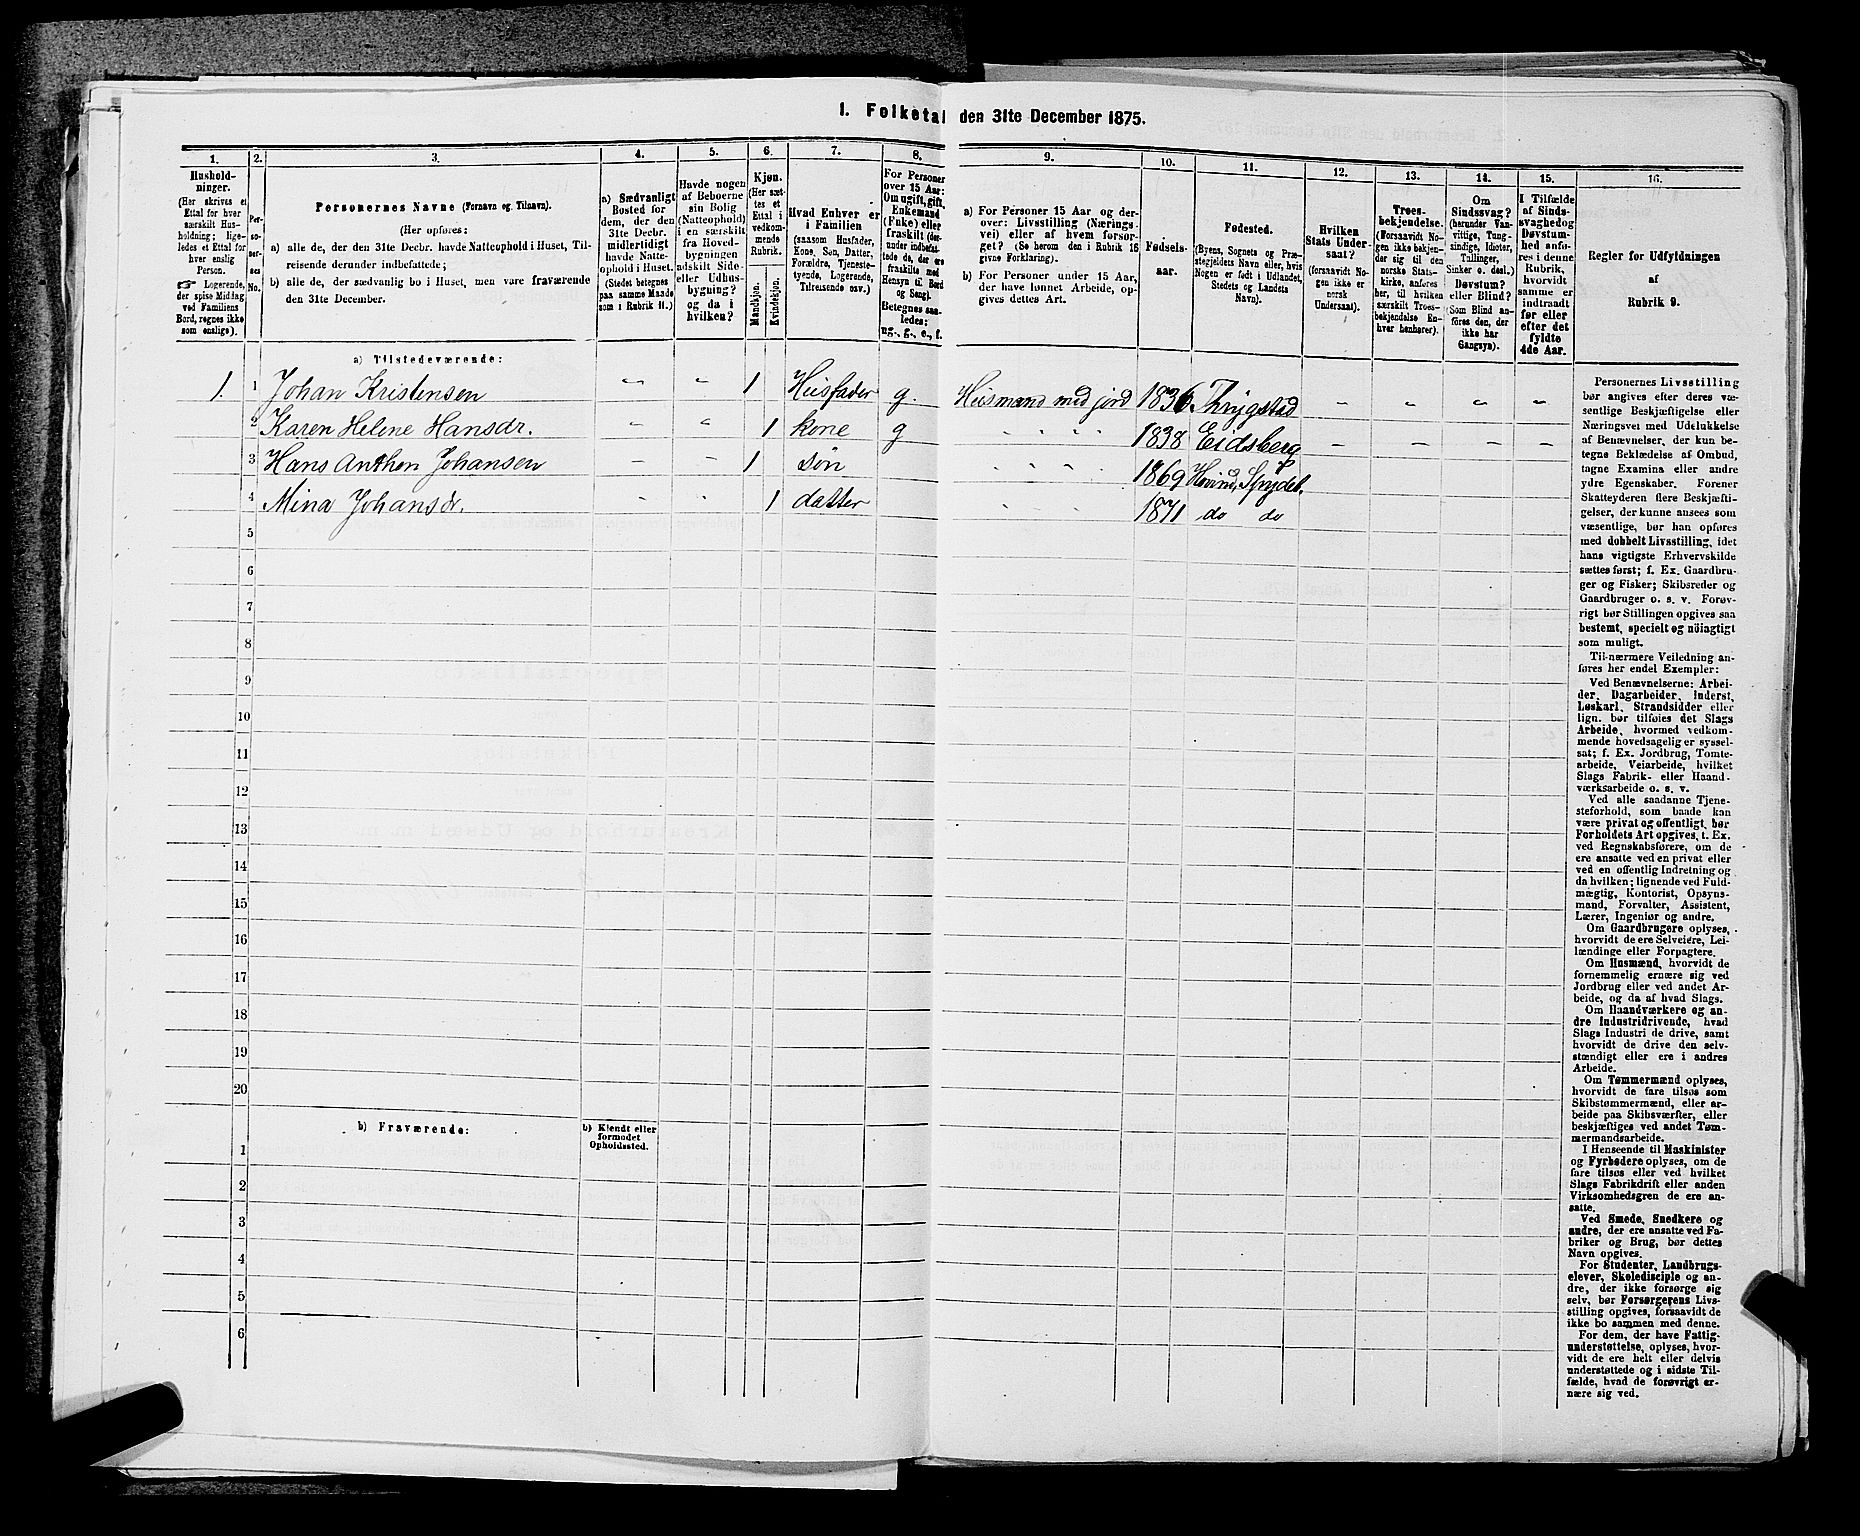 1. Folketal den 31te December 1875.
1.
Hushold-
ninger.
(Her skrives et
Ettal for hver
særskilt Hus-
holdning; lige-
ledes et Ettal for
hver enslig
Person.
☞ Logerende,
der spise Middag
ved Familiens
Bord, regnes ikke
som enslige).
2.
Per-
so-
ner-
nes
No.
3.
Personernes Navne (Fornavn og Tilnavn).
(Her opføres:
a) alle de, der den 31te Decbr. havde Natteophold i Huset, Til-
reisende derunder indbefattede;
b) alle de, der sædvanlig bo i Huset, men vare fraværende
den 31te December.
4.
a) Sædvanligt
Bosted for
dem, der den
31te Decbr.
midlertidigt
havde Natte-
ophold i Huset.
(Stedet betegnes
paa samme Maade
som i Rubrik II.)
5.
Havde nogen
af Beboerne
sin Bolig
(Natteophold)
i en særskilt
fra Hoved-
bygningen
adskilt Side-
eller Udhus-
bygning?
og da i
hvilken?
6.
Kjøn.
(Her sæt-
tes et
Ettal i
vedkom-
mende
Rubrik.
Mandskjøn.
Kvindekjøn.
7.
Hvad Enhver er
i Familien
(saasom Husfader,
Kone, Søn, Datter,
Forældre, Tjeneste-
tyende, Logerende,
Tilreisende osv.)
8.
For Personer
over 15 Aar:
Om ugift, gift,
Enkemand
(Enke) eller
fraskilt (der-
under indbefat-
tede de, der ere
fraskilte med
Hensyn til Bord
og Seng).
Betegnes saa-
ledes:
ug., g., e., f.
9.
a) For Personer 15 Aar og der-
over: Livsstilling (Nærings-
vei) eller af hvem forsør-
get? (Se herom den i Rubrik 16
givne Forklaring).
b) For Personer under 15 Aar,
der have lønnet Arbeide, op-
gives dettes Art.
10.
Fødsels-
aar.
11.
Fødested.
(Byens, Sognets og Præ-
stegjeldets Navn eller, hvis
Nogen er født i Udlandet,
Stedets og Landets
Navn).
12.
Hvilken
Stats Under-
saat?
(forsaavidt No-
gen ikke er
norsk
Undersaat).
13.
Troes-
bekjendelse.
(Forsaavidt No-
gen ikke bekjen-
der sig til den
norske Stats-
kirke, anføres
her, til hvilken
særskilt Troes-
bekjendelse En-
hver henhører).
14.
Om
Sindssvag?
(herunder Van-
vittige, Tung-
sindige, Idioter,
Tullinger,
Sinker o. desl.)
Døvstum?
eller Blind?
(Som Blind an-
føres den, der
ikke har
Gangsyn).
15.
I Tilfælde
af Sinds-
svaghed og
Døvstum-
hed anfø-
res i denne
Rubrik,
hvorvidt
samme er
indtraadt
før eller
efter det
fyldte
4de Aar.
16.
Regler for Udfyldningen
af
Rubrik 9.
a) Tilstedeværende:
1. 1 Johan Kristensen " " 1 Husfader g. Husmand med jord 1836 Thrygstad - - - -
2 Karen Helene Hansdr. " " 1 kone g " " " 1838 Eidsberg - - - -
3 Hans Anthon Johansen - - 1 søn " " " 1869 Hovind, Spydeb.
4 Mina Johansdr. " " 1 datter " " " 1871 do do
5
6
7
8
9
10
11
12
13
14
15
16
17
18
19
20
b) Fraværende:
b) Kjendt eller
formodet
Opholdssted.
1
2
3
4
5
6
Personernes Livsstilling
bør angives efter deres væ-
sentlige Beskjæftigelse eller
Næringsvei med Udelukkelse
af Benævnelser, der kun be-
tegne Beklædelse af Ombud,
tagne Examina eller andre
ydre Egenskaber. Forener
Skatteyderen flere Beskjæfti-
gelser, der kunne ansees som
væsentlige, bør han opføres
med dobbelt Livsstilling, idet
hans vigtigste Erhvervskilde
sættes først; f. Ex. Gaardbru-
ger og Fisker; Skibsreder og
Gaardbruger o. s. v. Forøv-
rigt bør Stillingen opgives saa
bestemt, specielt og nöiagtigt
som muligt.
Til nærmere Veiledning an-
føres her endel Exempler:
Ved Benævnelserne: Arbei-
der, Dagarbeider, Inderst,
Løskarl, Strandsidder eller
lign. bør tilføies det Slags
Arbeide, hvormed vedkom-
mende hovedsagelig er syssel-
sat; f. Ex. Jordbrug, Tomte-
arbeide, Veiarbeide, hvilket
Slags Fabrik- eller Haand-
værksarbeide o. s. v.
Ved alle saadanne Tjene-
steforhold, som baade kan
være privat og offentligt, bør
Forholdets Art opgives, t. Ex.
ved Regnskabsførere, om de
ere ansatte ved en privat eller
ved en offentlig Indretning og
da hvilken; lignende ved Fuld-
mægtig, Kontorist, Opsyns-
mand, Forvalter, Assistent,
Lærer, Ingeniør og andre.
Om Gaardbrugere oplyses,
hvorvidt de ere Selveiere, Lei-
lændinge eller Forpagtere.
Om Husmænd, hvorvidt de
fornemmelig ernære sig ved
Jordbrug eller ved andet Ar-
beide, og da af hvad Slags.
Om Haandværkere og an-
dre Industridrivende, hvad
Slags Industri de drive, samt
hvorvidt de drive den selv-
stændigt eller ere i andres
Arbeide.
Om Tømmermænd oplyses,
hvorvidt de fare tilsøs som
Skibstømmermænd, eller ar-
beide paa Skibsværfter, eller
beskjæftiges ved andet Tøm-
mermandsarbeide.
I Henseende til Maskinister
og Fyrbødere oplyses, om de
fare tilsøs eller ved hvilket
Slags Fabrikdrift eller anden
Virksomhedsgren de ere an-
satte.
Ved Smede, Snedkere og
andre, der ere ansatte ved Fa-
briker og Brug, bør dettes
Navn opgives.
For Studenter, Landbrugs-
elever, Skoledisciple og an-
dre, der ikke forsørge sig
selv, bør Forsørgerens Livs-
stilling opgives, forsaavidt de
ikke bo sammen med denne.
For dem, der have Fattig-
understøttelse, oplyses, hvor-
vidt de ere helt eller delvis
understøttede og i sidste Til-
fælde, hvad de forøvrigt er-
nære sig ved.